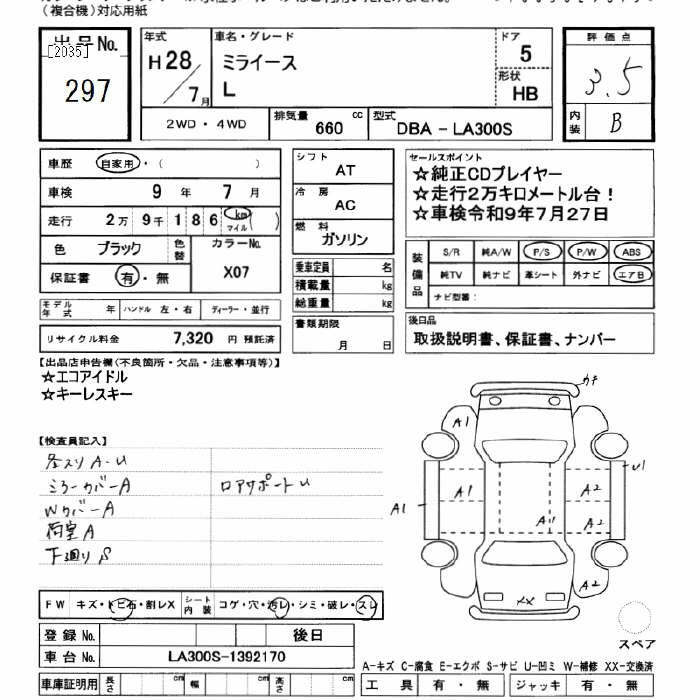 (複合機)対応用紙
出品No.
[2035]
297
年式
H28/7月
車名・グレード
ミライース
L
ドア
5
形状
HB
評価点
3.5
内装
B
2WD・4WD
排気量
660 cc
型式
DBA－LA300S
車歴 自家用・( )
車検 9年 7月
走行 2万9千186 km マイル ( )
色 ブラック 色替
カラーNo.
X07
保証書 有・無
シフト
AT
冷房
AC
燃料
ガソリン
乗車定員 名
積載量 kg
総重量 kg
書類期限
月 日
セールスポイント
☆純正CDプレイヤー
☆走行2万キロメートル台！
☆車検令和9年7月27日
装備品
S/R 純A/W P/S P/W ABS
純TV 純ナビ 革シート 外ナビ エアB
ナビ型番：
モデル年式 年 ハンドル 左・右 ディーラー・並行
リサイクル料金 7,320 円 預託済
後日品
取扱説明書、保証書、ナンバー
【出品店申告欄(不良箇所・欠品・注意事項等)】
☆エコアイドル
☆キーレスキー
【検査員記入】
各スリ A-U
ミラーカバーA
ロアサポートU
WカバーA
荷室A
下廻りS
カチ
A1
U1
A1
A1
A2
A1
A2
A2
XX
FW キズ・トビ石・割レX
シート内装 コゲ・穴・汚レ・シミ・破レ・スレ
登録No. 後日
車台No. LA300S-1392170
スペア
A-キズ C-腐食 E-エクボ S-サビ U-凹ミ W-補修 XX-交換済
車庫証明用 長さ cm 幅 cm 高さ cm
工具 有・無 ジャッキ 有・無